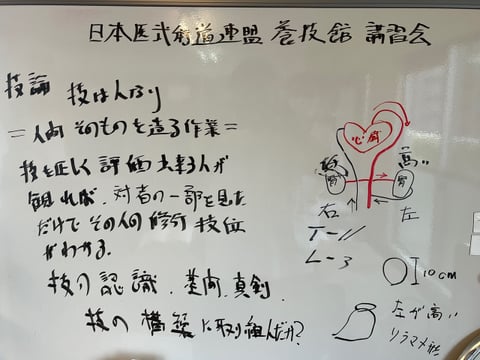 日本医武道連盟 養技館 講習会
技論 技は人なり
=人間そのものを造る作業=
技を正しく評価出来る人が
観れば、対者の一部を見た
だけでその人の修行技位
がわかる。
技の認識、差向、真剣、
技の構築に取り組んだか?
心臓
高い
腎
腎
右 左
T-11
L-3
10cm
左が高い
ソラマメ形